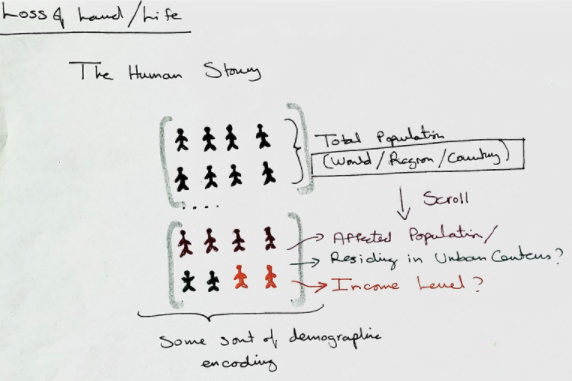 Loss of Land/Life
The Human Story
Total Population
(World/Region/Country)
....
Scroll
Affected Population/
Residing in Urban Centers?
Income Level?
Some sort of demographic
encoding